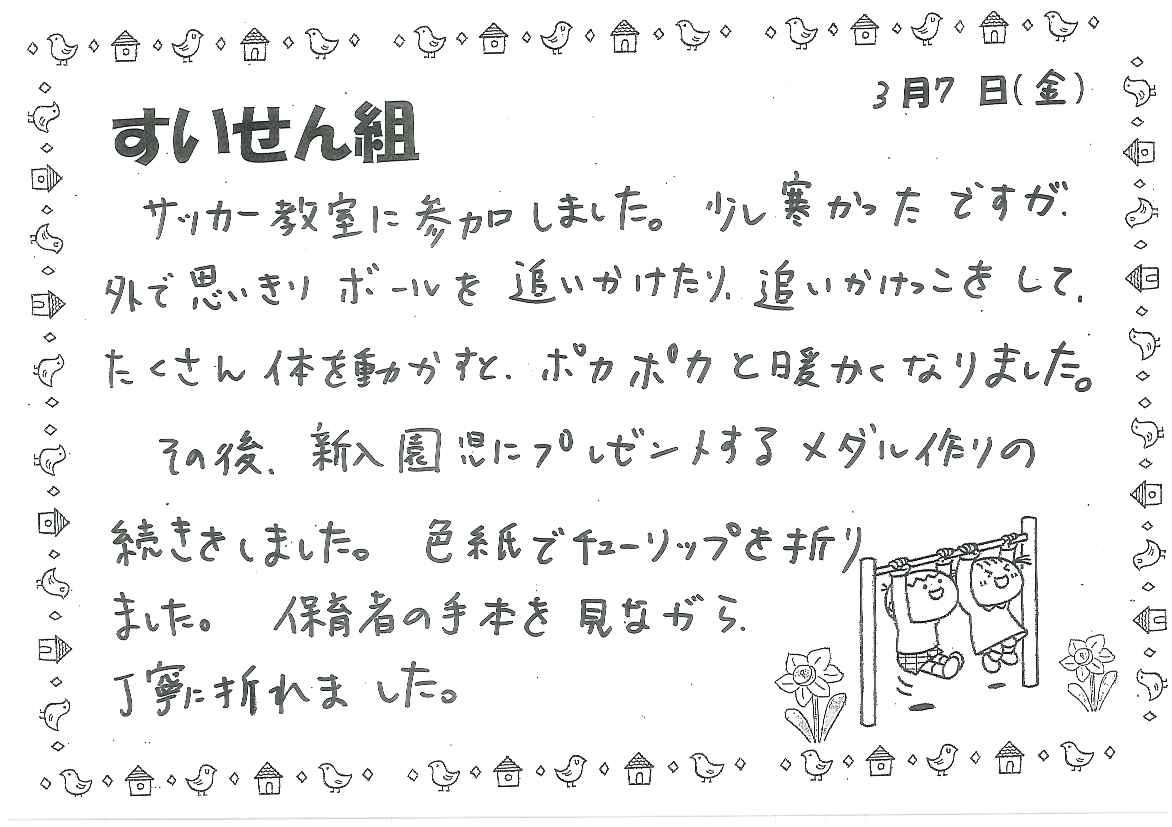 3月7日(金)
すいせん組
サッカー教室に参加しました。少し寒かったですが、
外で思いきりボールを追いかけたり、追いかけっこをして、
たくさん体を動かすと、ポカポカと暖かくなりました。
その後、新入園児にプレゼントするメダル作りの
続きをしました。色紙でチューリップを折り
ました。保育者の手本を見ながら、
丁寧に折れました。